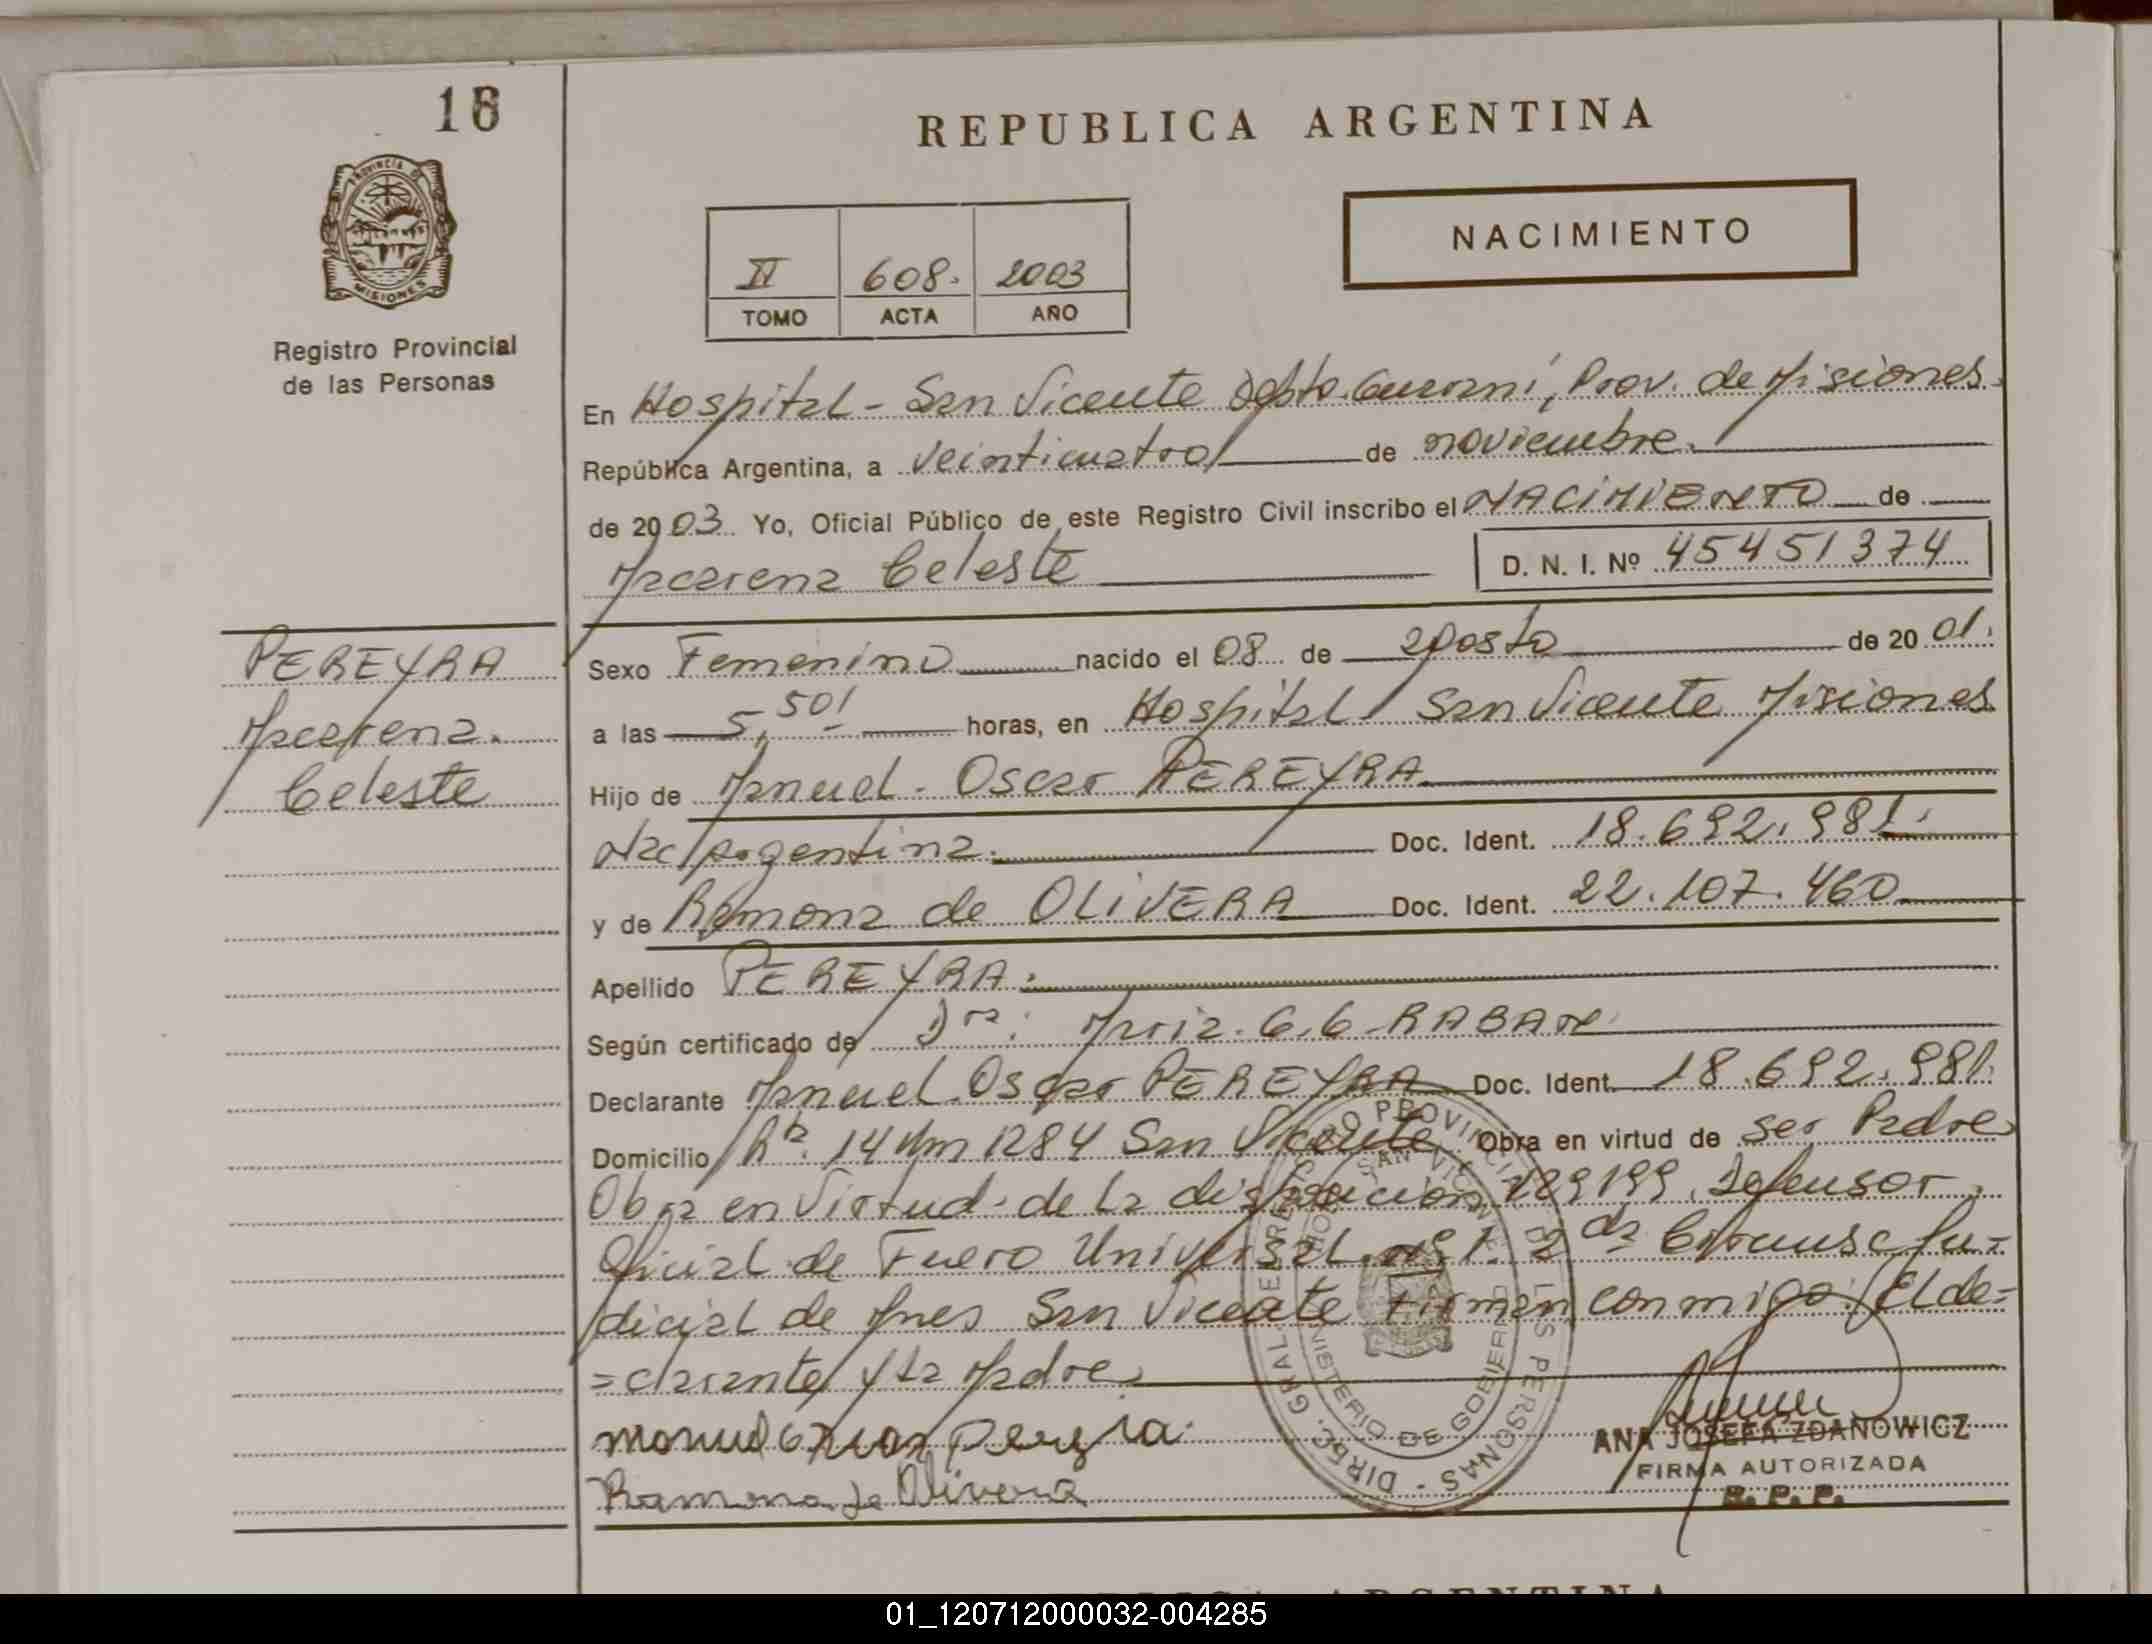 18
REPUBLICA ARGENTINA
PROVINCIA DE
MISIONES
Registro Provincial
de las Personas
II 608. 2003
TOMO ACTA AÑO
NACIMIENTO
En Hospital - San Vicente Dpto. Guaraní, Prov. de Misiones.
República Argentina, a veinticuatro de noviembre.
de 2003. Yo, Oficial Público de este Registro Civil inscribo el NACIMIENTO de
Macarena Celeste D. N. I. Nº 45451374
PEREYRA
Macarena.
Celeste
Sexo Femenino nacido el 08 de agosto de 2001.
a las 5,50 horas, en Hospital San Vicente Misiones
Hijo de Manuel. Oscar PEREYRA
Nac Argentina. Doc. Ident. 18.692.981.
y de Ramona de OLIVERA Doc. Ident. 22.107.460
Apellido PEREYRA.
Según certificado de Dra: Maria. G. G. RABAN
Declarante Manuel. Oscar PEREYRA Doc. Ident. 18.692.981.
Domicilio Rta. 14 Km 1284 San Vicente Obra en virtud de ser Padre
Obra en virtud. de la disposición 189199. Defensor
Oficial de Fuero Universal. nº 1. 2da Circunsc Ju-
dicial de Mnes San Vicente Firman conmigo: El de=
=clarante y la Madre
Manuel Oscar Pereyra
Ramona de Olivera
ANA JOSEFA ZDANOWICZ
FIRMA AUTORIZADA
R. P. P.
DIREC. GRAL. DEL REGISTRO PROVINCIAL DE LAS PERSONAS
SAN VICENTE
MINISTERIO DE GOBIERNO
01_120712000032-004285